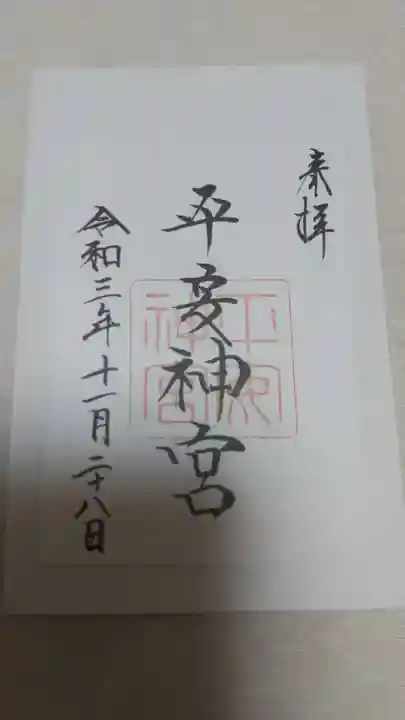 奉拝
平安神宮
令和三年十一月二十八日
平安神宮